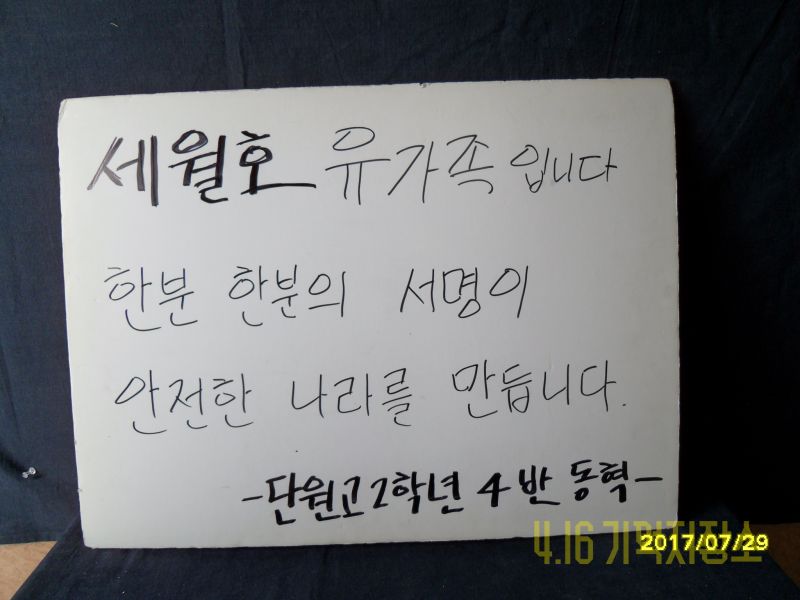 세월호 유가족입니다
한분 한분의 서명이
안전한 나라를 만듭니다.
-단원고 2학년 4반 동혁-
4.16 기억저장소
2017/07/29